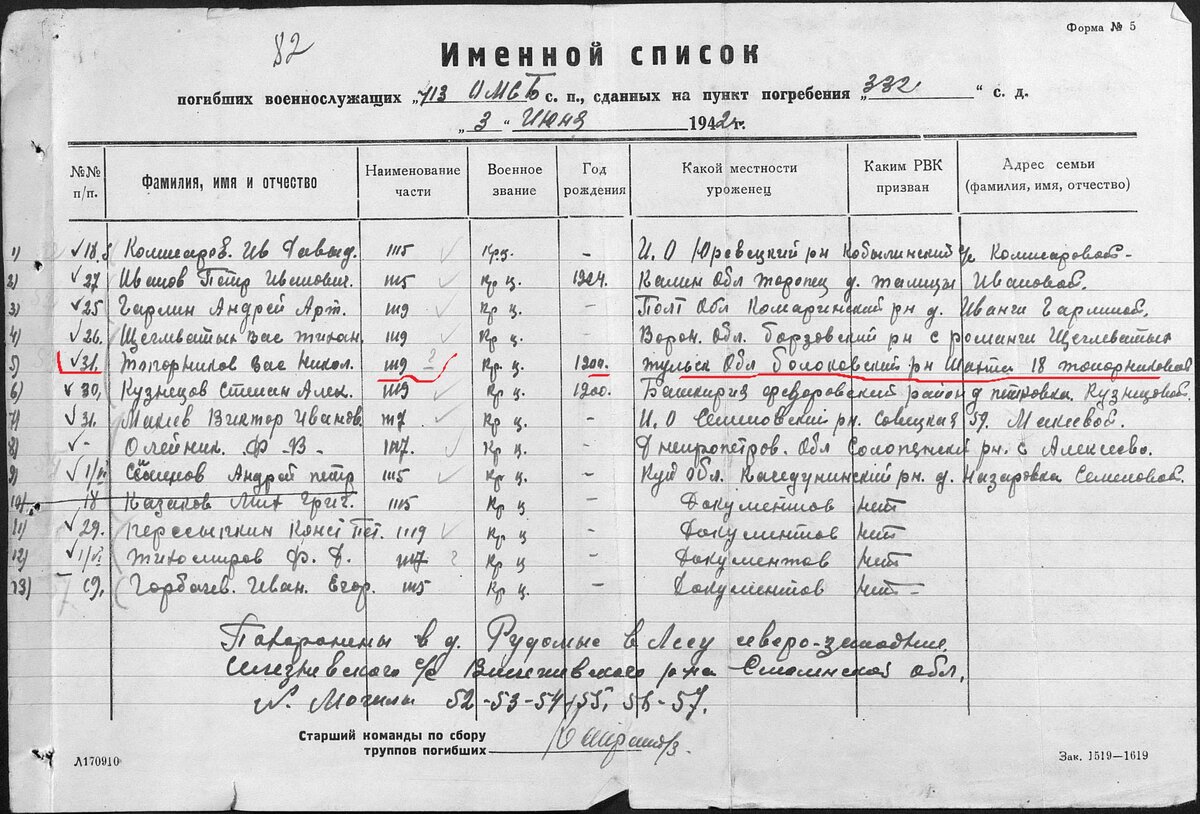 Форма № 5
82
Именной список
погибших военнослужащих „713 ОМСБ с. п., сданных на пункт погребения „332 “ с. д.
„ 3 “ Июня 1942 г.
№№ п/п. Фамилия, имя и отчество Наименование части Военное звание Год рождения Какой местности уроженец Каким РВК призван Адрес семьи (фамилия, имя, отчество)
1) 18. Комисаров. Ив Давыд. 1115 Кр ц. – И. О Юревецкий рн Кобылинский с/с Комисаровой -
2) 27 Иванов Петр Иванович. 1115 Кр ц. 1924. Калин Обл Торопец д. Ивановой.
3) 25 Гармин Андрей Арт. 1119 Кр ц. – Полт Обл рн д. Иванчи Гарминой.
4) 26. Щегливатых Вас Тихан. 1119 Кр ц. – Ворон. Обл. Борзовский рн с Щегливатых
5) 31. Топорников Вас Никол. 1119 ? Кр. ц. 1900. Тульск Обл Болоховский рн Шахта 18 Топорниковой
6) 30, Кузнецов Степан Алек. 1119 Кр ц. 1900. Башкирия Федоровский район д Петровка Кузнецовой.
7) 31. Макеев Виктор Иванов. Кр ц. – И. О Семеновский рн. Советская 59. Макеевой.
8) - Олейник. Ф-В - 1117. Кр ц. – Днепропетров. Обл рн. с Алексеево.
9) 1/VI Семенов Андрей Петр 1115 Кр ц. – Куй Обл. рн. д. Назаровка Семеновой.
10) 18 Казаков Мих Григ. 1115 Кр ц – Документов нет
11) 29. Конст Пет. 1119 Кр ц. – Документов нет
12) 1/VI Тихомиров Ф. Д. 1117 ? Кр ц. – Документов нет
13) 19. Горбачев. Иван. Егор. 1115 Кр ц. – Документов нет -
Похоронены в д. Рудомые в лесу северо-западнее
с/с р-на Смоленской обл.
N. Могилы 52-53-54-55, 56-57.
Старший команды по сбору
труппов погибших
Л170910
Зак. 1519—1619